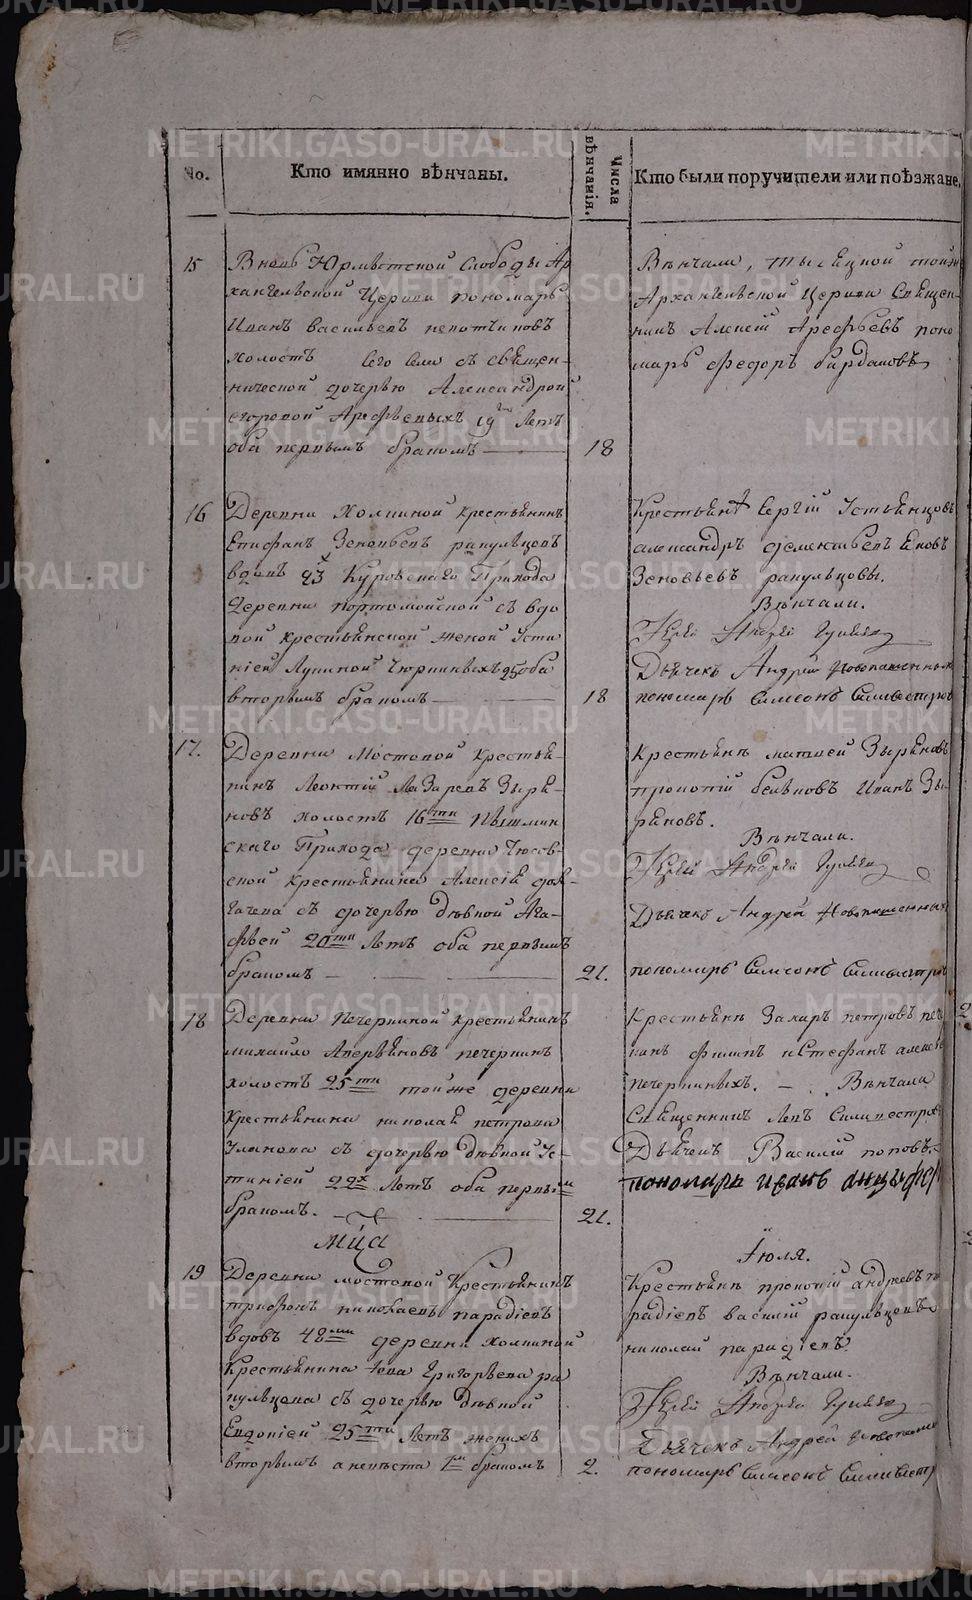 No.
Кто имянно вѣнчаны.
Числа вѣнчанія.
Кто были поручители или поѣзжане.
15
Вновь Юрмытской Слободы Ар
хангельской Церкви пономарь
Иванъ васильевъ
холостъ Сего Села съ свѣщен-
нической дочерью Александрой
Егоровой Арефьевыхъ 19 Лѣтъ
оба первымъ бракомъ
18
Вѣнчали, той
Архангельской Церкви Священ-
никъ Алексій Арефьевъ поно
марь Федоръ бардаковъ
16
Деревни Холкиной крестьянинъ
Епифанъ Зеновьевъ ракульцовъ
вдовъ 23х Куровскаго Прихода
деревни портомойской съ вдо
вой крестьянской женой Усти
ніей Лукиной 25 оба
вторымъ бракомъ
18
Крестьянѣ Сергій Устьянцовъ
александръ дементьевъ
Зеновьевъ ракульцовы.
Вѣнчали.
Іерей Андрей
Дьячекъ Андрей Новопашенныхъ
пономарь Симеонъ Силивестровъ
17.
Деревни Мостовой Крестья-
нинъ Леонтій Лазаревъ Зыря-
новъ холостъ 16ти Пышмин
скаго Прихода деревни
ской крестьянина Алексія
съ дочерью дѣвкой Ага-
фьей 20ти Лѣтъ оба первымъ
бракомъ
21.
Крестьянѣ матвей Зыряновъ
прокопій белѣковъ Иванъ Зы-
ряновъ.
Вѣнчали.
Іерей Андрей
Дьячекъ Андрей Новопашенныхъ
пономарь Симеонъ Силивестровъ
18
Деревни Печеркиной Крестьянинъ
михайло Аверьяновъ печеркинъ
холостъ 25ти той же деревни
Крестьянина николая петрова
Улакова съ дочерью дѣвкой Ус-
тиніей 22х Лѣтъ оба первым
бракомъ.
21.
Крестьянѣ Захаръ петровъ печ
кинъ филипъ и Стефанъ алексѣ
печеркиныхъ. – Вѣнчали
Священникъ Левъ Силивестров
Дьячекъ Василій поповъ
пономарь Иванъ
Мца
Іюля.
19
Деревни мостовой Крестьянинъ
трифонъ николаевъ парадѣевъ
вдовъ 48ми деревни холкиной
Крестьянина Іова Григорьева ра
кульцова съ дочерью дѣвкой
Евдокіей 25ти Лѣтъ женихъ
вторымъ а невѣста 1м бракомъ
2.
Крестьянѣ прокопій андреевъ па
радѣевъ василій ракульцовъ
николай парадѣевъ
Вѣнчали.
Іерей Андрей
Дьячекъ Андрей Новопашен
пономарь Симеонъ Силивестр
METRIKI.GASO-URAL.RU